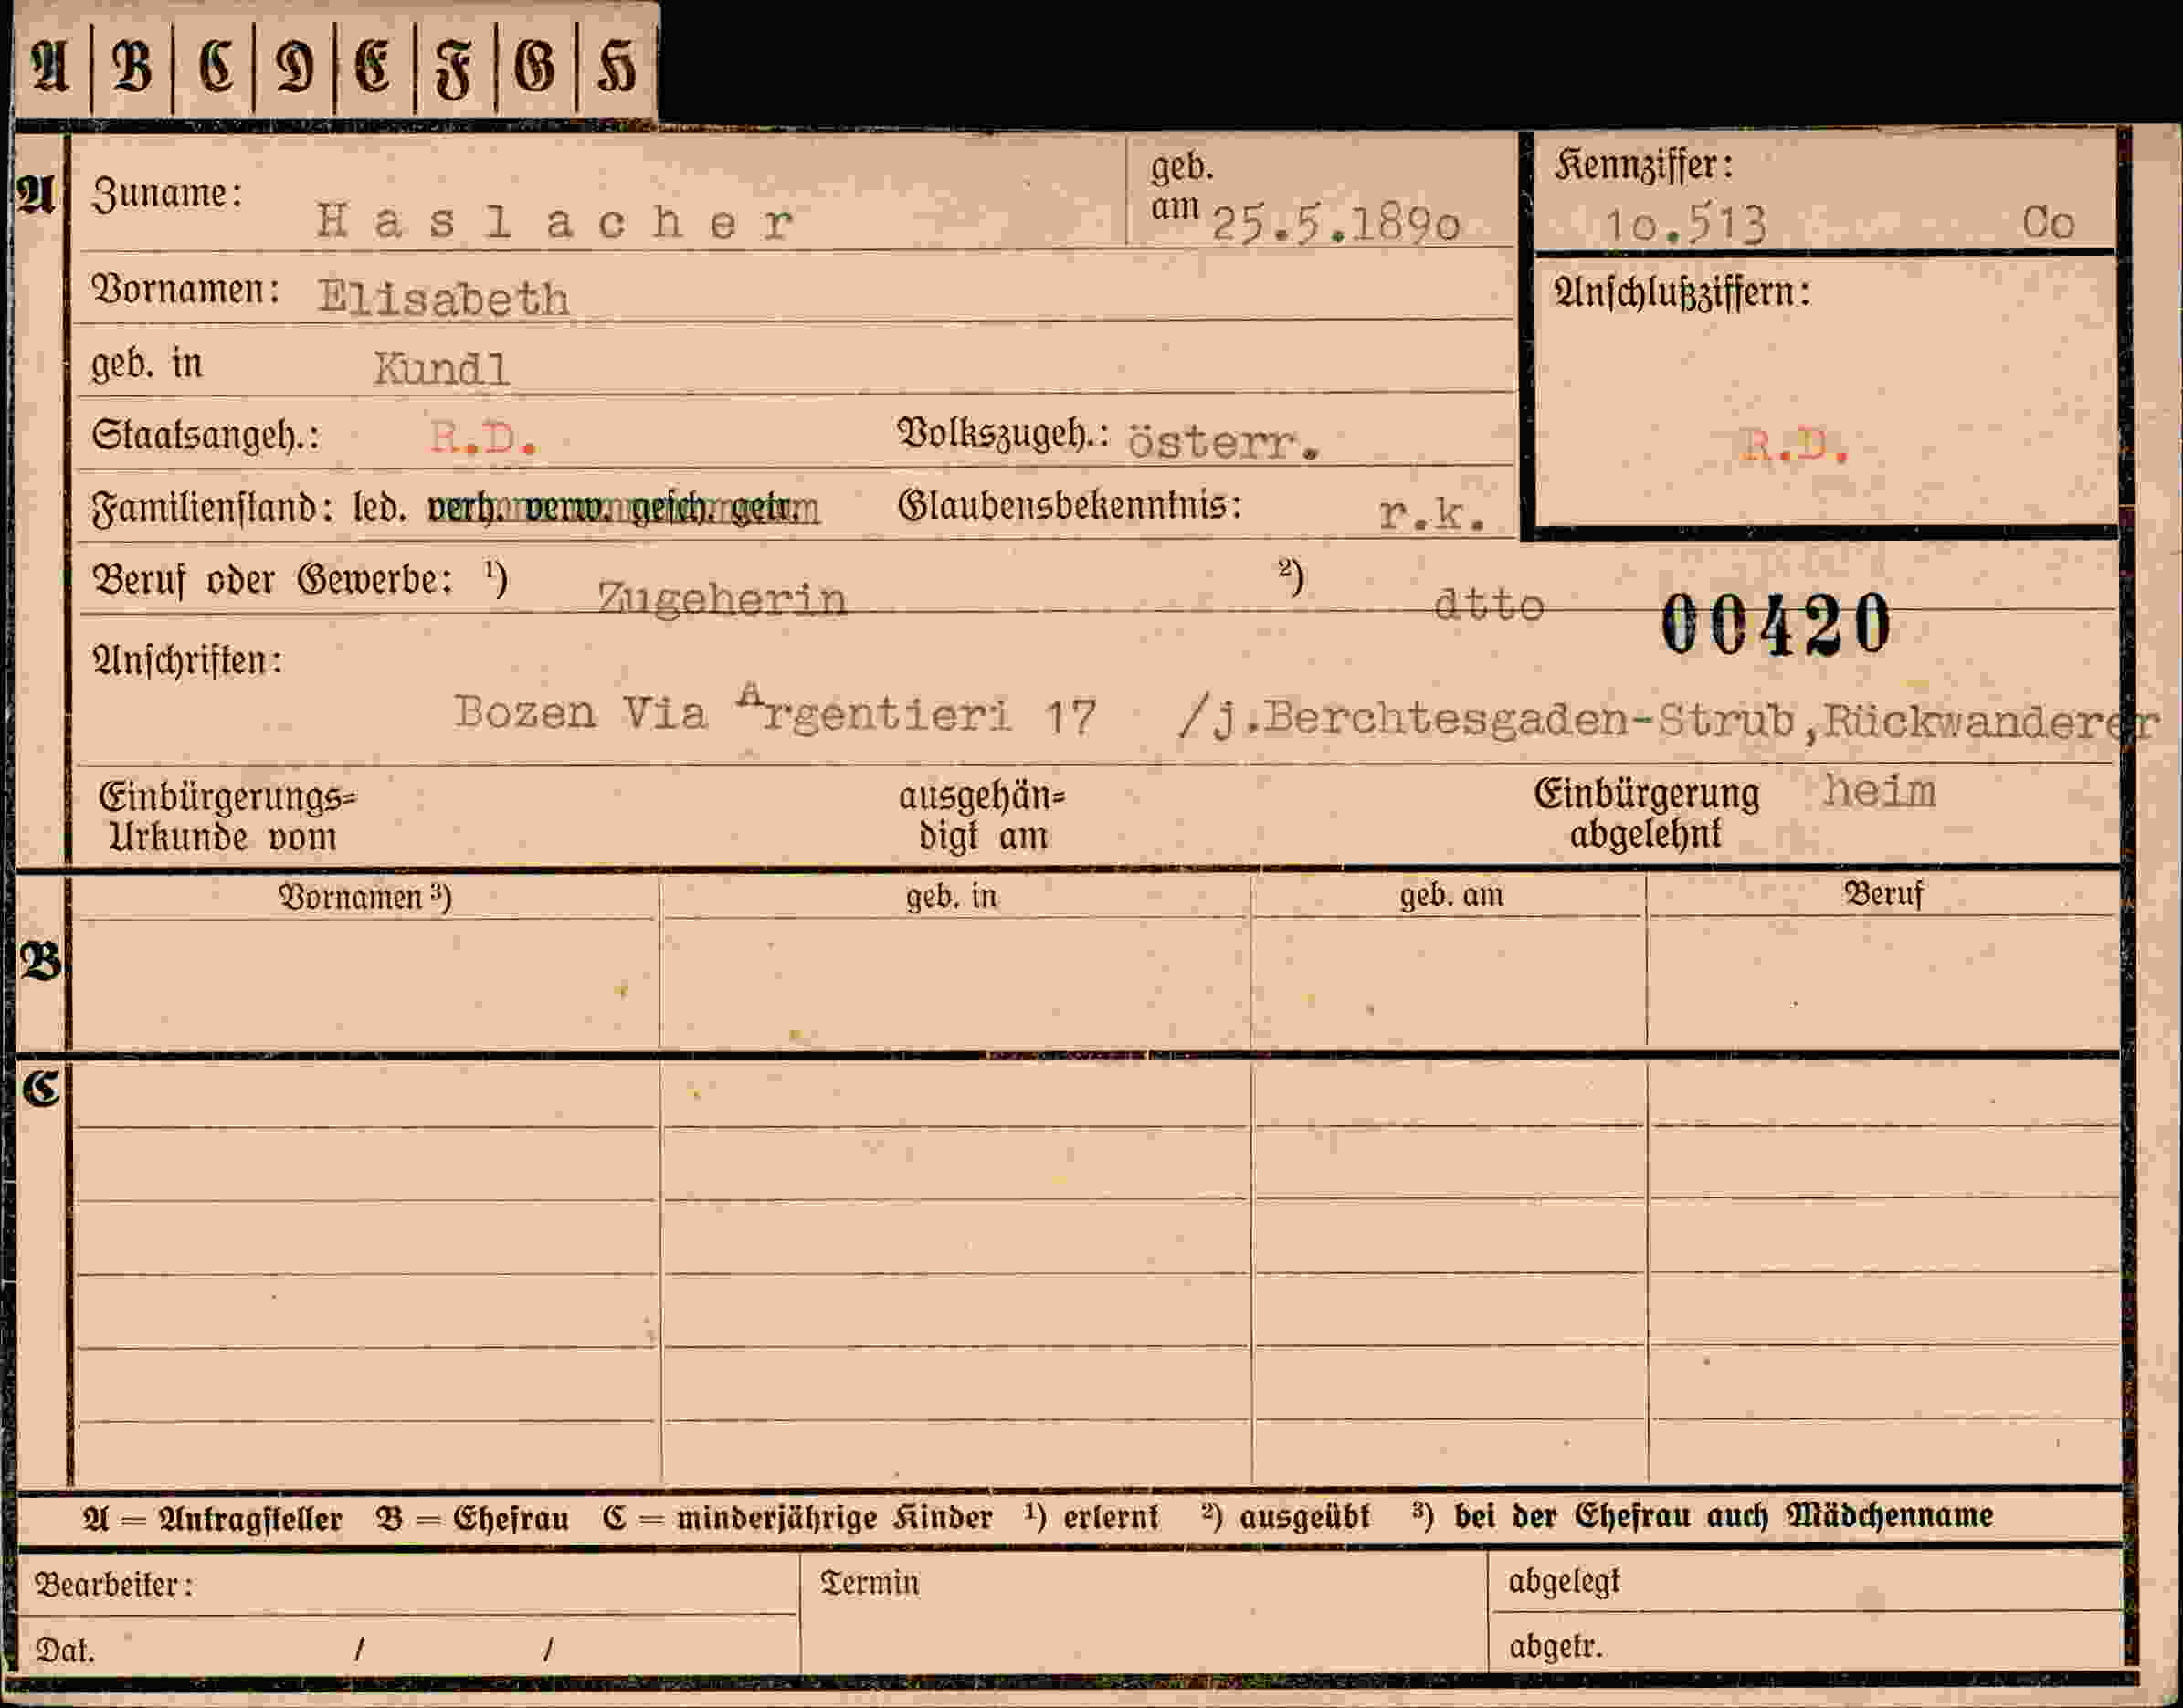 A B C D E F G H
A Zuname: Haslacher geb. am 25.5.1890 Kennziffer: 10.513 Co
Vornamen: Elisabeth Anschlußziffern:
geb. in Kundl
Staatsangeh.: R.D. Volkszugeh.: österr. R.D.
Familienstand: led. verh. verw. gesch. getr. Glaubensbekenntnis: r.k.
Beruf oder Gewerbe: ¹) Zugeherin ²) dtto 00420
Anschriften:
Bozen Via Argentieri 17 /j.Berchtesgaden-Strub,Rückwanderer
Einbürgerungs= ausgehän= Einbürgerung heim
Urkunde vom digt am abgelehnt
Vornamen ³) geb. in geb. am Beruf
B
C
A = Antragsteller B = Ehefrau C = minderjährige Kinder ¹) erlernt ²) ausgeübt ³) bei der Ehefrau auch Mädchenname
Bearbeiter: Termin abgelegt
Dat. / / abgetr.